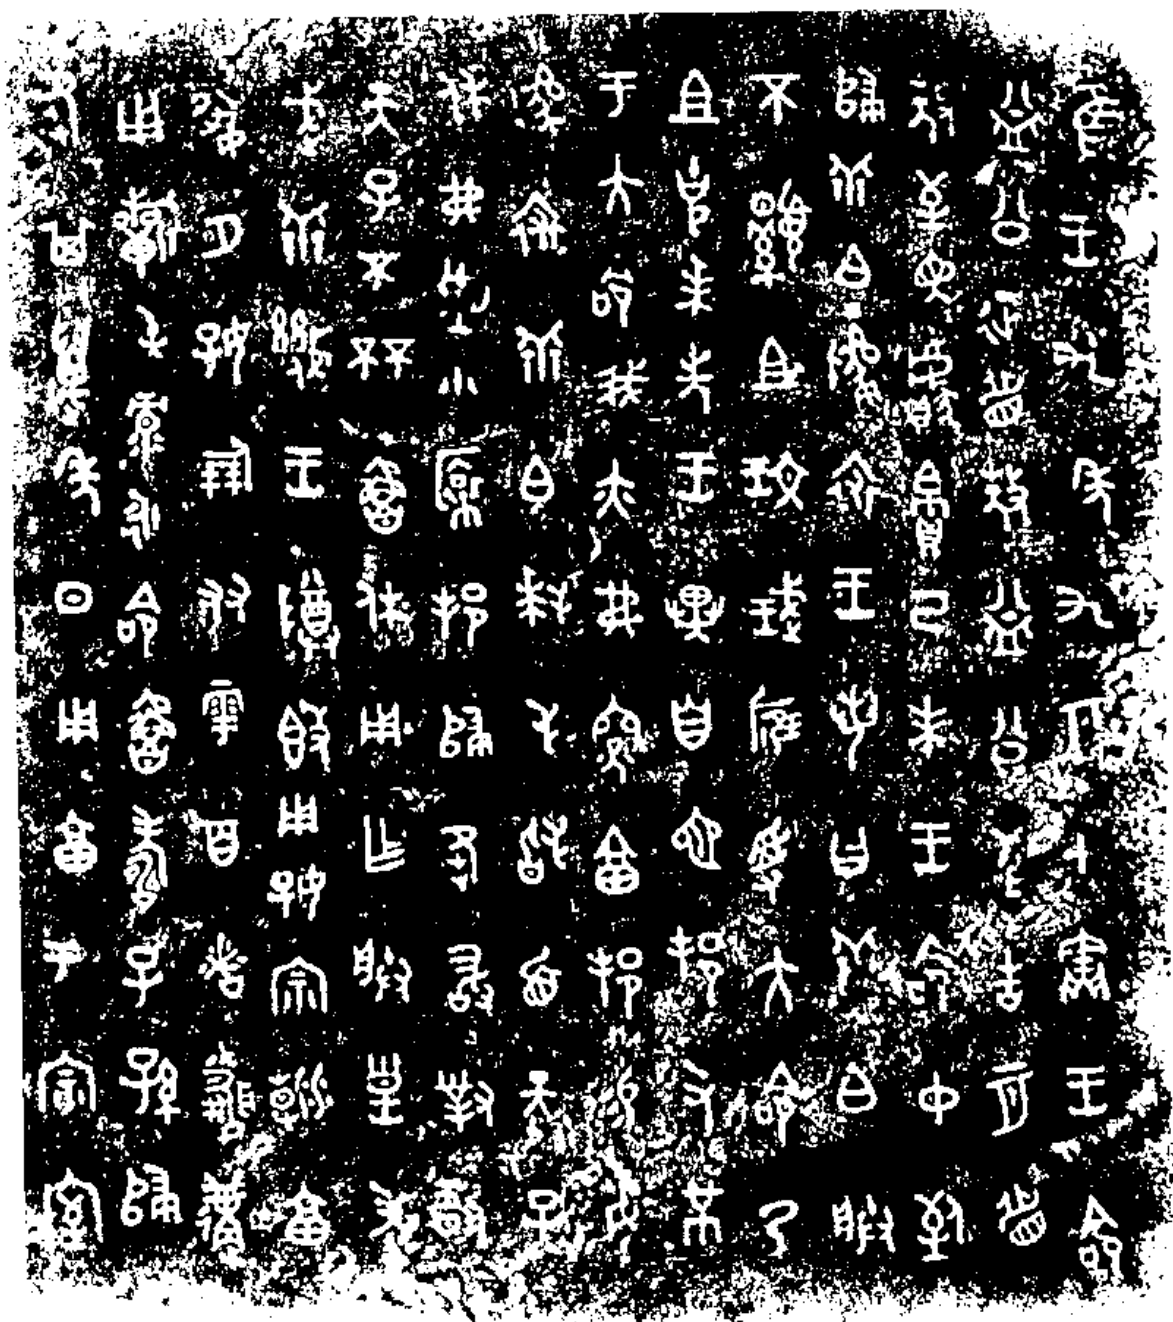 隹王九年九月甲寅王命
益公征眉敖益公至告二月眉
敖至見獻帛己未王命中致
歸乖白貔裘王若曰乖白朕
不顯且玟珷雁受大命乃
且克先王異自它邦又芇
于大命我亦弗享邦易女
裘乖白拜手稽首天子
休弗忘小裔邦歸夆敢對揚
天子不杯魯休用乍朕皇考
武乖幾王尊簋用好宗廟享
夙夕好倗友雩百者婚遘
用祈屯彔永命魯壽子孫歸
夆其萬年日用享于宗室